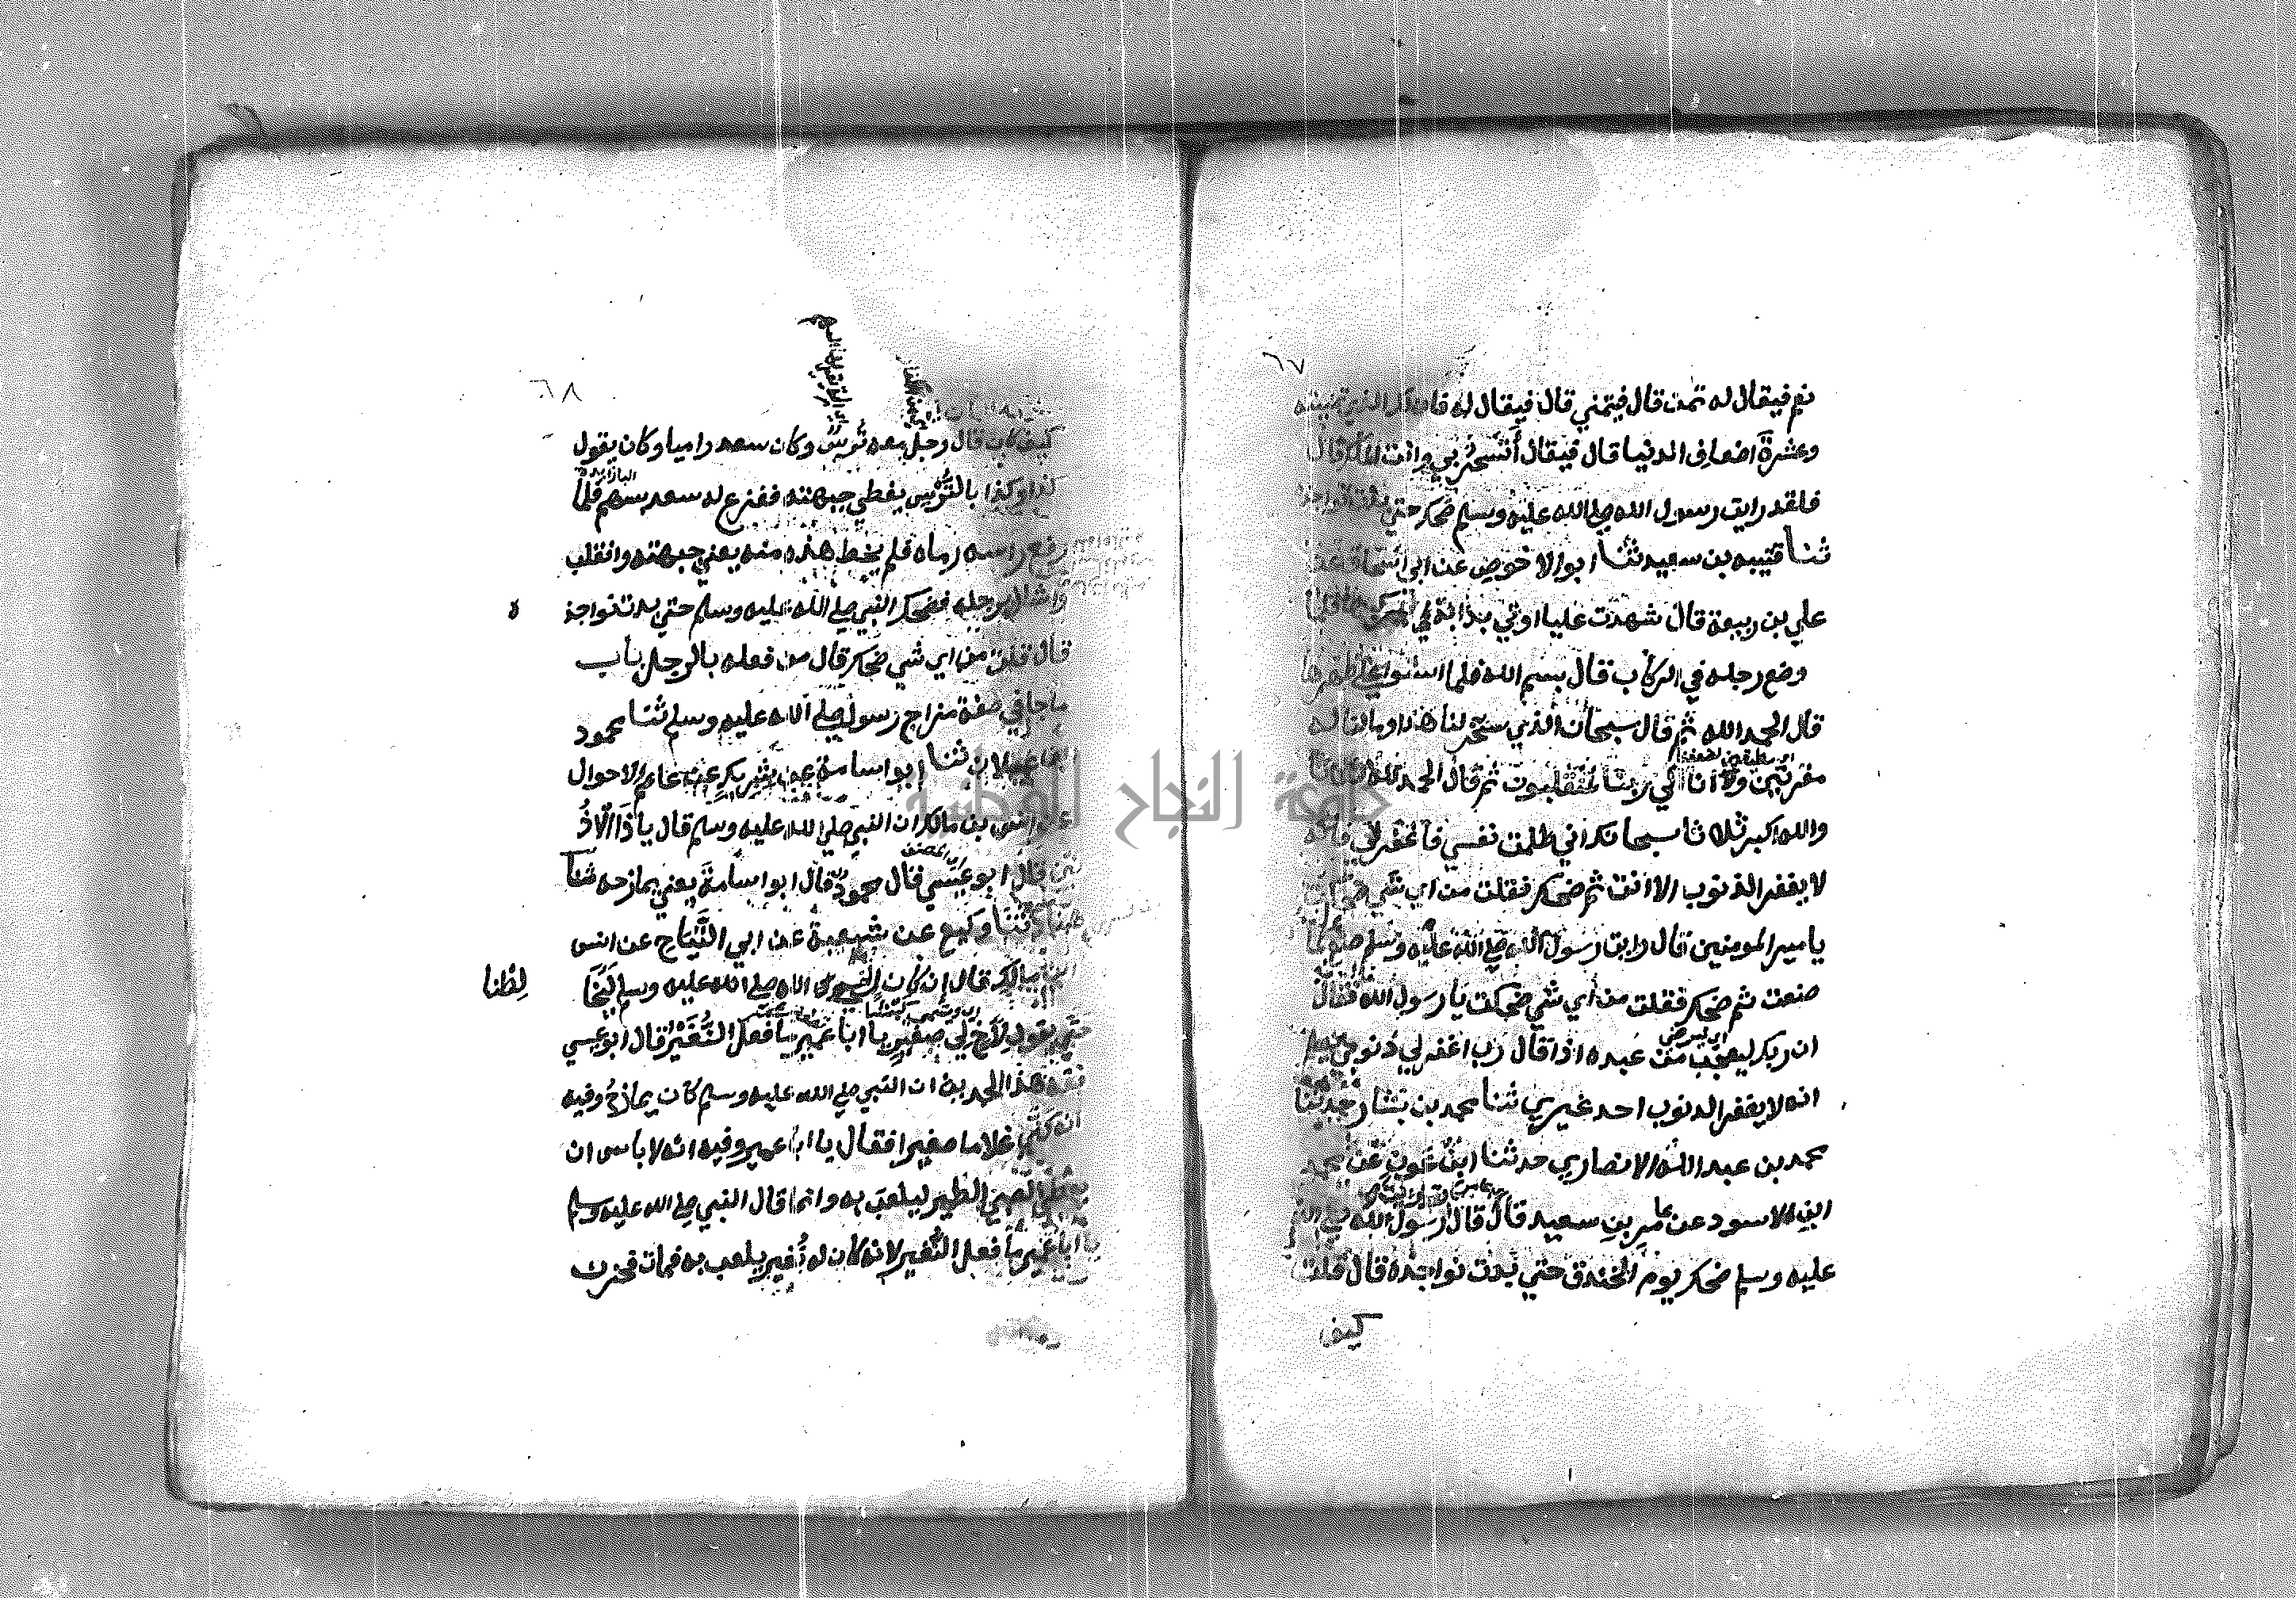 ٦٧
نعم فيقال له تمن قال فيتمني قال فيقال له فان لك الذي تمنيت
وعشرة اضعاف الدنيا قال فيقال أتسخر بي وانت الملك قال
فلقد رايت رسول الله صلي الله عليه وسلم ضحك حتي بدت نواجذه
ثنا قتيبه بن سعيد ثنا ابو الاخوص عن ابي اسحاق عن
علي بن ربيعة قال شهدت عليا اوتي بدابة فلما
وضع رجله في الركاب قال بسم الله فلما استوا علي ظهرها
قال الحمد الله ثم قال سبحان الذي سخر لنا هذا وما كنا له
مقرنين وانا الي ربنا لمنقلبون ثم قال الحمد لله ثلاثا
والله اكبر ثلاثا سبحانك اني ظلمت نفسي فاغفر لي فانه
لا يغفر الذنوب الا انت ثم ضحك فقلت من اي شي ضحكت
يا مير المومنين قال رايت رسول الله صلي الله عليه وسلم صنع كما
صنعت ثم ضحك فقلت من أي شي ضحكت يا رسول الله فقال
ان ربك ليعجب من عبده اذا قال رب اغفر لي ذنوبي يعلم
انه لا يغفر الدنوب احد غيري ثنا محمد بن بشار حدثنا
محمد بن عبد الله الانصاري حدثنا ابن عون عن محمد
ابن الاسود عن عامر بن سعيد قال قال رسول الله صلي الله
عليه وسلم ضحك يوم الخندق حتي بدت نواجذه قال قلت
كيف
٦٨
كيف كان قال رجل معه ترس وكان سعد راميا وكان يقول
كذا وكذا بالترس يغطي جبهته ففزع له سعد بسهم فلما
رفع راسه رماه فلم يخط هذه منه يعني جبهته وانقلب
وشال برجله فضحك النبي صلي الله عليه وسلم حتي بدت نواجذ
ه
قال قلت من اي شي ضحك قال من فعله بالرجل باب
ما جا في صفة مزاح رسول صلي الله عليه وسلم ثنا محمود
ابن غيلان ثنا ابو اسامة عن شريك عن عاصم الاحوال
عن انس بن مالك ان النبي صلي الله عليه وسلم قال يا ذا الاذ
نين قال ابو عيسي قال محمود قال ابو اسامة يعني يمازحه ثنا
هناد ثنا وكيع عن شعبة عن ابي التياح عن انس
ابن مالك قال ان كان رسول الله صلي الله عليه وسلم ليخا
لطنا
حتي يقول لأخ لي صغير يا ابا عمير ما فعل النغير قال ابو عيسي
فقه هذا الحديث ان النبي صلي الله عليه وسلم كان يمازح وفيه
انه كني غلاما صغيرا فقال يا ابا عمير وفيه انه لا باس ان
يعطي الصبي الطير ليلعب به وانما قال النبي صلي الله عليه وسلم
يا ابا عمير ما فعل النغير لانه كان له نغير يلعب به فمات فحزن
جامعة النجاح الوطنية